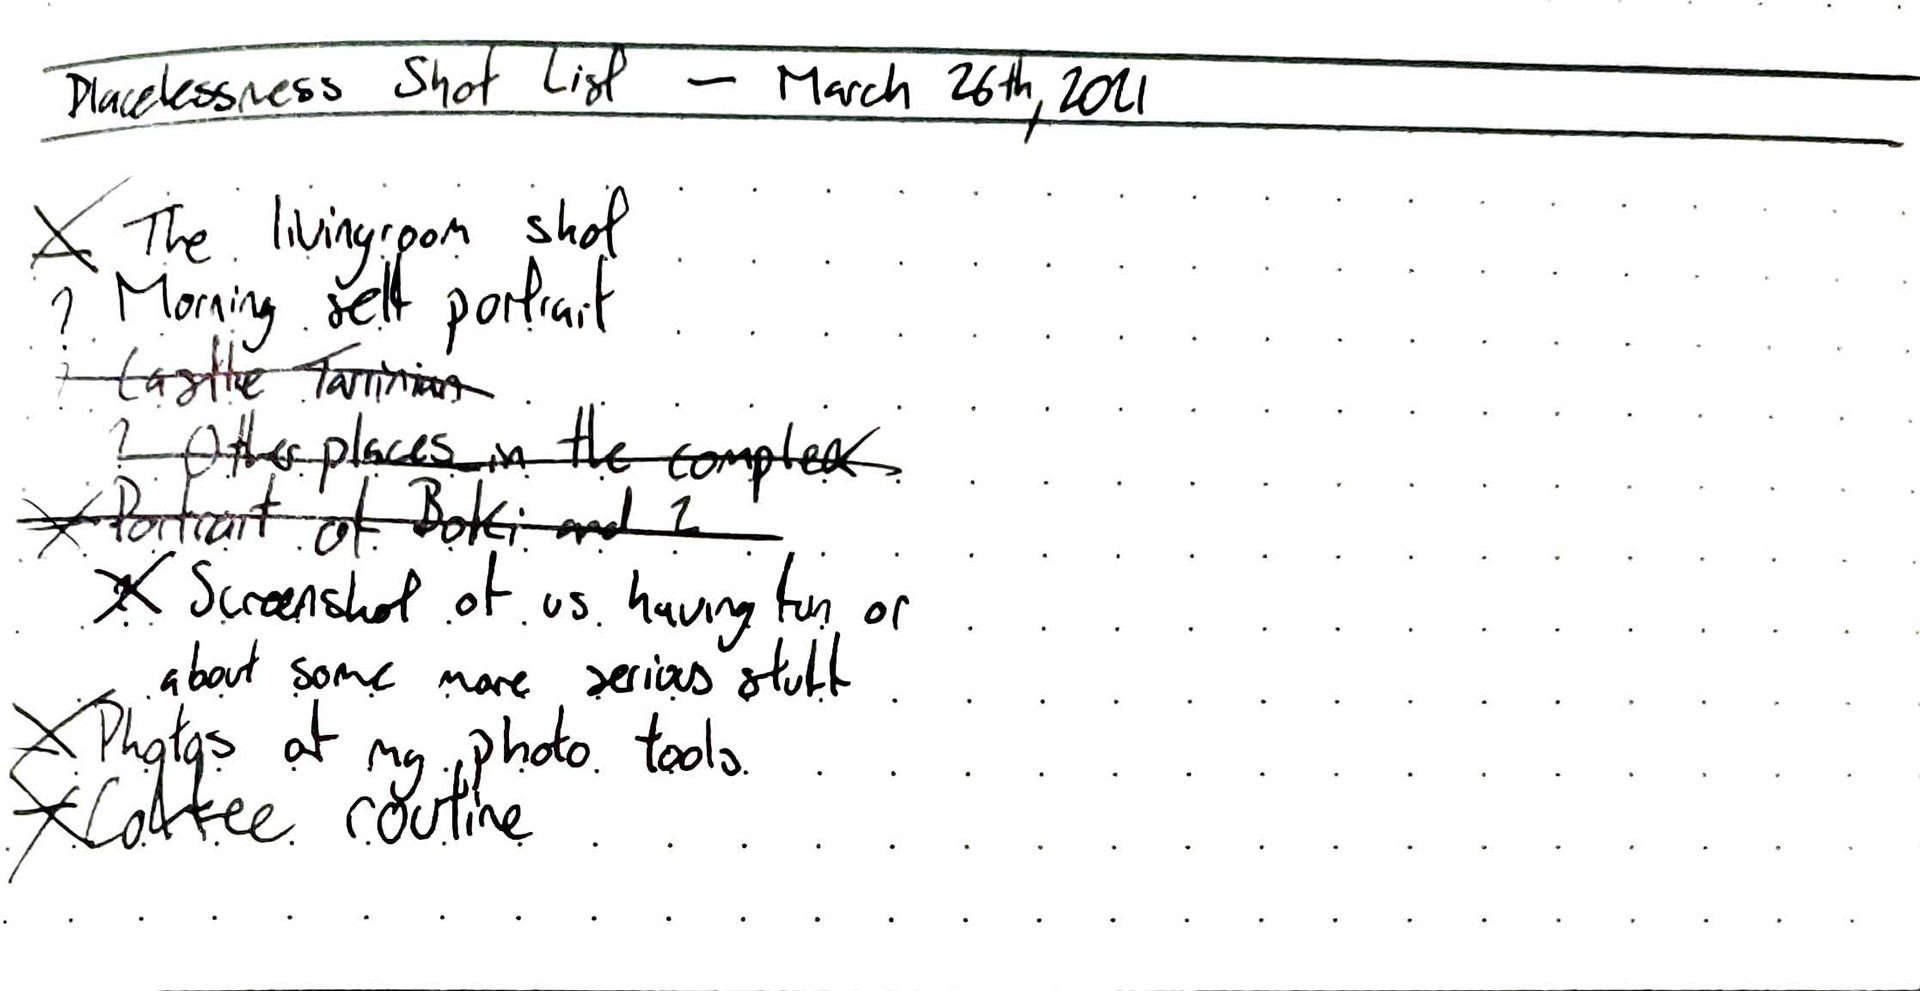 Placelessness Shot List — March 26th, 2021
X The livingroom shot
? Morning self portrait
? Castle
? Other places in the complex
X Portrait of Boki and I
X Screenshot of us having fun or
about some more serious stuff
X Photos of my photo tools
X Coffee routine